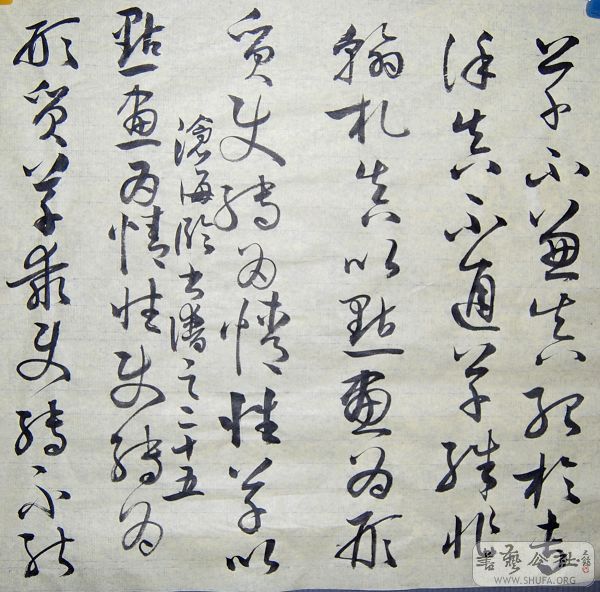 草不兼真殆於專
謹真不通草殊非
翰札真以點畫為形
質使轉為情性草以
點畫為情性使轉為
形質草乖使轉不能
滄海臨書譜之二十五
書藝公社
WWW.SHUFA.ORG